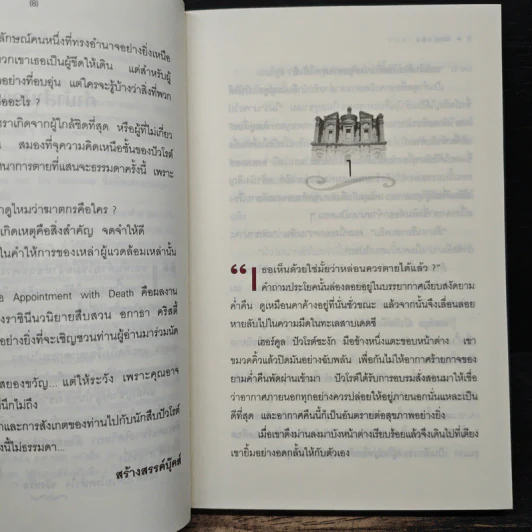 (8)
ลักษณ์คนหนึ่งที่ทรงอำนาจอย่างยิ่งเหนือ
วกเขาเธอเป็นผู้ขีดให้เดิน แต่สำหรับผู้
อย่างที่อบอุ่น แต่ใครจะรู้บ้างว่าสิ่งที่พวก
ออะไร ?
ราเกิดจากผู้ใกล้ชิดที่สุด หรือผู้ที่ไม่เกี่ยว
น สมองที่จุความคิดเหนือชั้นของปัวโรต์
นาการตายที่แสนจะธรรมดาครั้งนี้ เพราะ
าดูไหมว่าฆาตกรคือใคร ?
เกิดเหตุคือสิ่งสำคัญ จดจำให้ดี
ในคำให้การของเหล่าผู้แวดล้อมเหล่านั้น
อ Appointment with Death คือผลงาน
งราชินีนวนิยายสืบสวน อกาธา คริสตี้
อย่างยิ่งที่จะเชิญชวนท่านผู้อ่านมาร่วมนัด
สยองขวัญ... แต่ให้ระวัง เพราะคุณอาจ
นึกไม่ถึง
าและการสังเกตของท่านไปกับนักสืบปัวโรต์
งนี้ไม่ธรรมดา...
สร้างสรรค์บุ๊คส์
๑
“เธอเห็นด้วยใช่มั้ยว่าหล่อนควรตายได้แล้ว ?”
คำถามประโยคนั้นล่องลอยอยู่ในบรรยากาศเงียบสงัดยาม
ค่ำคืน ดูเหมือนคาค้างอยู่ที่นั่นชั่วขณะ แล้วจากนั้นจึงเลื่อนลอย
หายลับไปในความมืดในทะเลสาบเดดซี
เฮอร์คูล ปัวโรต์ชะงัก มือข้างหนึ่งแตะขอบหน้าต่าง เขา
ขมวดคิ้วแล้วปิดมันอย่างฉับพลัน เพื่อกันไม่ให้อากาศร้ายกาจของ
ยามค่ำคืนพัดผ่านเข้ามา ปัวโรต์ได้รับการอบรมสั่งสอนมาให้เชื่อ
ว่าอากาศภายนอกทุกอย่างควรปล่อยให้อยู่ภายนอกนั่นแหละเป็น
ดีที่สุด และอากาศคืนนี้ก็เป็นอันตรายต่อสุขภาพอย่างยิ่ง
เมื่อเขาดึงม่านลงมาบังหน้าต่างเรียบร้อยแล้วจึงเดินไปที่เตียง
เขายิ้มอย่างอดกลั้นให้กับตัวเอง